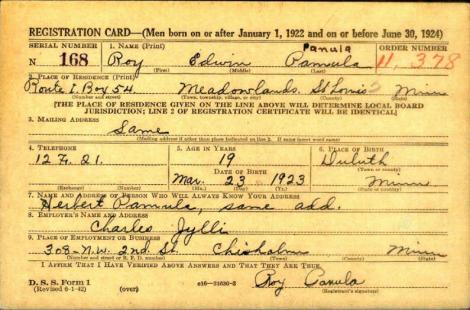 REGISTRATION CARD—(Men born on or after January 1, 1922 and on or before June 30, 1924)
SERIAL NUMBER 1. NAME (Print) ORDER NUMBER
Panula
N 168 Roy Edwin Pannula 11,378
(First) (Middle) (Last)
2. PLACE OF RESIDENCE (Print)
Route 1, Box 54. Meadowlands. St Louis Minn
(Number and street) (Town, township, village, or city) (County) (State)
[THE PLACE OF RESIDENCE GIVEN ON THE LINE ABOVE WILL DETERMINE LOCAL BOARD
JURISDICTION; LINE 2 OF REGISTRATION CERTIFICATE WILL BE IDENTICAL]
3. MAILING ADDRESS
Same
(Mailing address if other than place indicated on line 2. If same insert word same)
4. TELEPHONE 5. AGE IN YEARS 6. PLACE OF BIRTH
12 F. 21. 19 Duluth
DATE OF BIRTH (Town or county)
Mar. 23 1923 Minn
(Exchange) (Number) (Mo.) (Day) (Yr.) (State or country)
7. NAME AND ADDRESS OF PERSON WHO WILL ALWAYS KNOW YOUR ADDRESS
Herbert Pannula, same add.
8. EMPLOYER'S NAME AND ADDRESS
Charles Jylli
9. PLACE OF EMPLOYMENT OR BUSINESS
308-N.W. 2nd St. Chisholm Minn
(Number and street or R. F. D. number) (Town) (County) (State)
I AFFIRM THAT I HAVE VERIFIED ABOVE ANSWERS AND THAT THEY ARE TRUE.
D. S. S. Form 1 Roy Panula
(Revised 6-1-42) (over) 16—21630-2 (Registrant's signature)